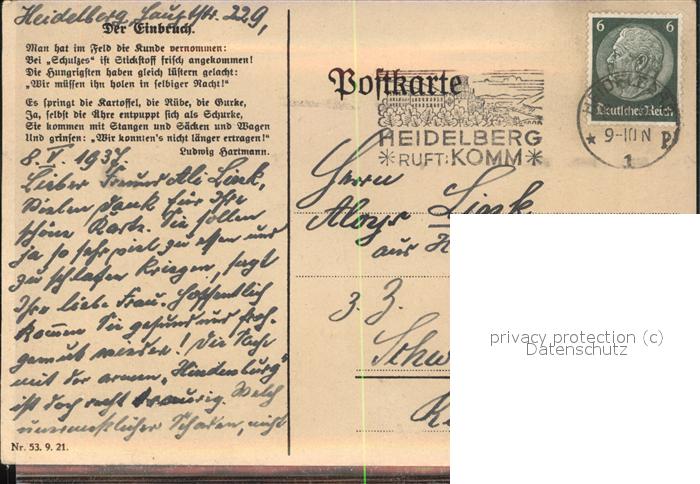 Heidelberg, Hauptstr. 229,
Der Einbruch.
Man hat im Feld die Kunde vernommen:
Bei „Schulzes“ ist Stickstoff frisch angekommen!
Die Hungrigsten haben gleich lüstern gelacht:
„Wir müssen ihn holen in selbiger Nacht!“
Es springt die Kartoffel, die Rübe, die Gurke,
Ja, selbst die Ähre entpuppt sich als Schurke,
Sie kommen mit Stangen und Säcken und Wagen
Und grinsen: „Wir konnten's nicht länger ertragen!“
Ludwig Hartmann.
8. V. 1937.
Lieber Freund Ali Link,
Vielen Dank für Ihre
schöne Karte. Sie sollen
ja so sehr viel zu essen und
zu schlafen kriegen, sagt
Ihre liebe Frau. Hoffentlich
kommen Sie gesund und froh-
gemut wieder! Die Sache
mit der armen „Hindenburg“
ist doch recht traurig. Welch
unermesslicher Schaden, nicht
Nr. 53. 9. 21.
Postkarte
HEIDELBERG
RUFT: KOMM
6 6
Deutsches Reich
HEIDELBERG
9-10 N
1
Herrn
Aloys Link
aus H
z. Z.
Schw
K
privacy protection (c)
Datenschutz